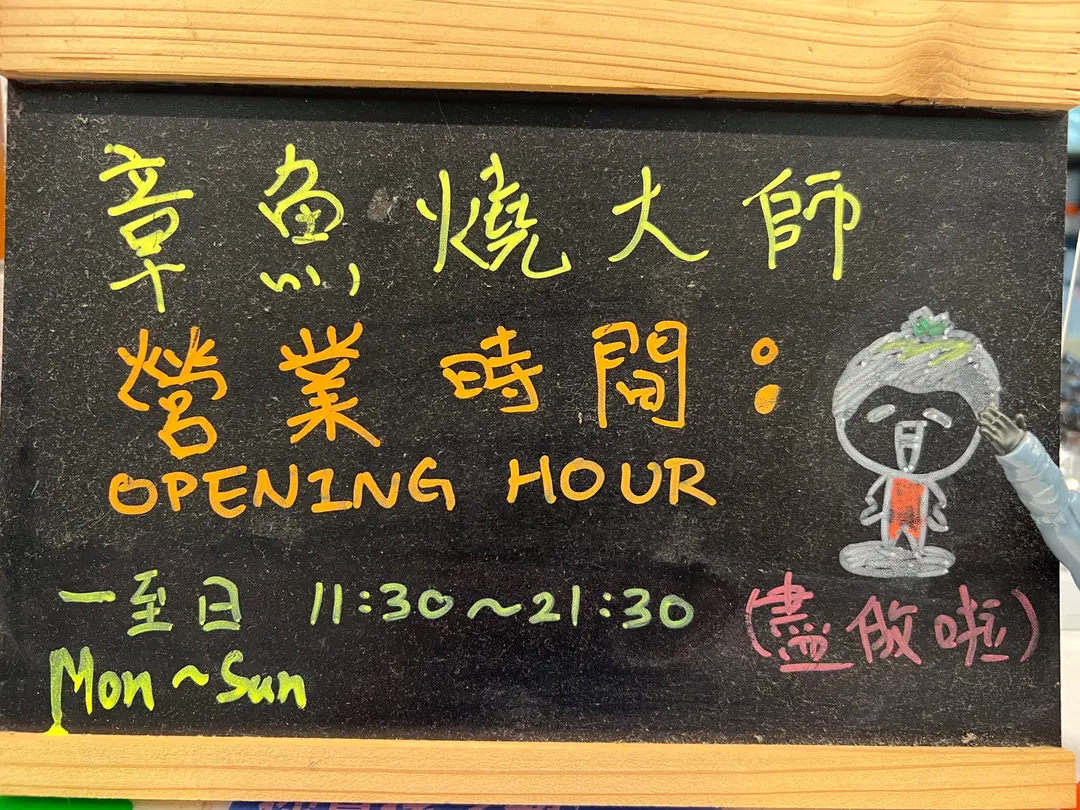 章魚燒大師
營業時間：
OPENING HOUR
一至日 11:30～21:30
(盡做啦)
Mon～Sun